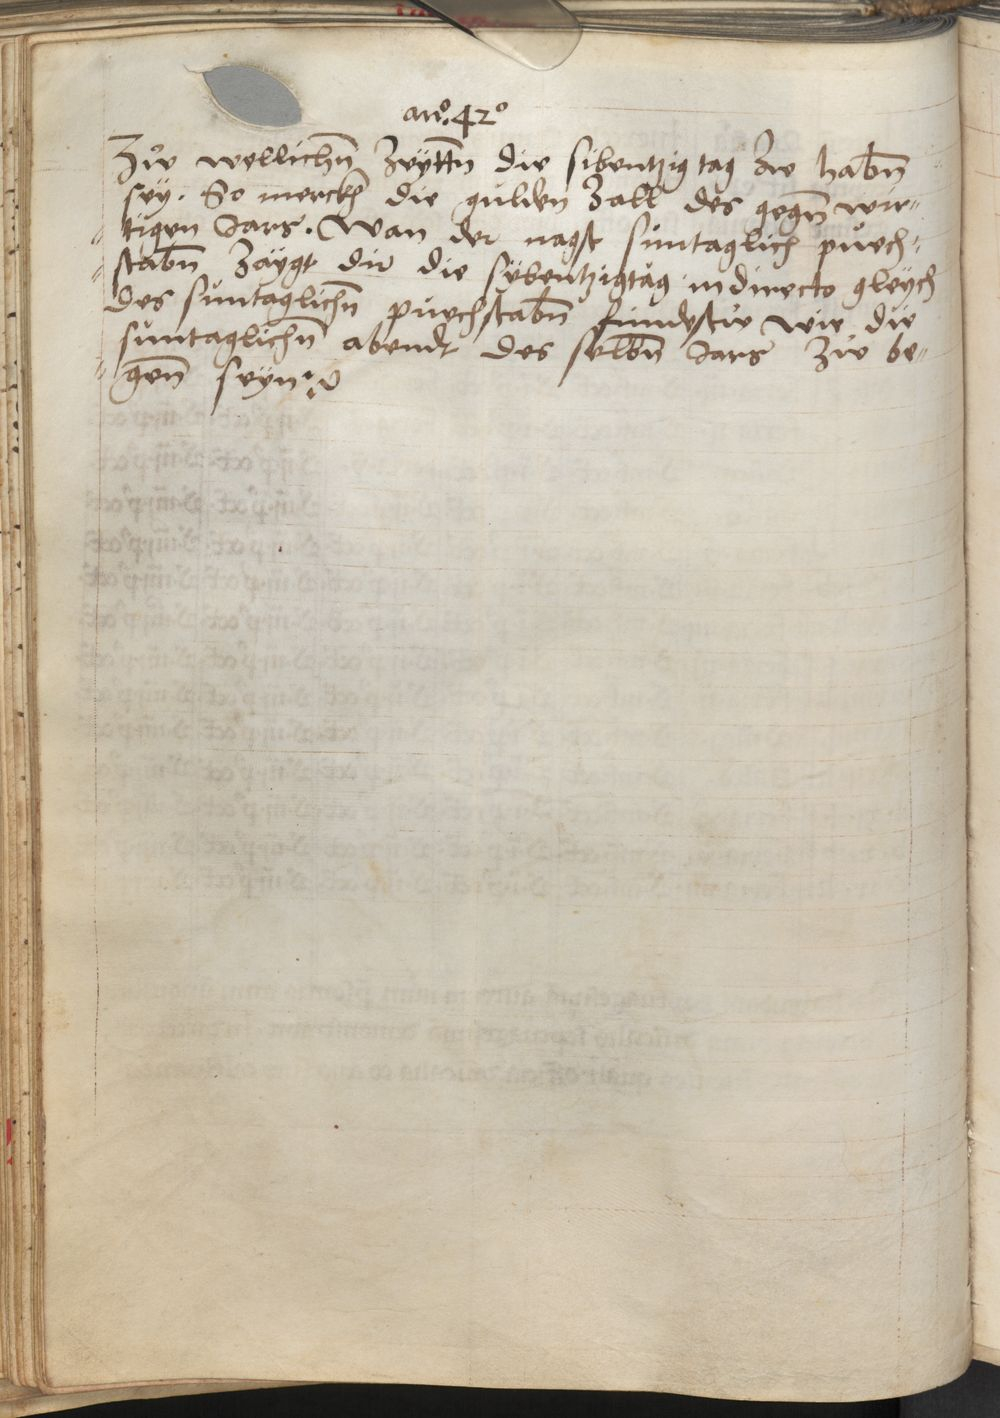 an̄o. 42º
Zuͦe wellichn̄ Zeyttn̄ die sibentzig tag Zue habn̄
sey. So merckh die gulden Zall des gegn̄ wir=
tigen Jars. Wan der nagst suntaglich puech=
stabn̄ Zaÿgt dir die sÿbentzigtag indirecto gleych
des suntaglichn̄ puechstabn̄ findestue wie die
suntaglichn̄ abendt des selbn̄ Jars Zue be=
gen̄ seyn